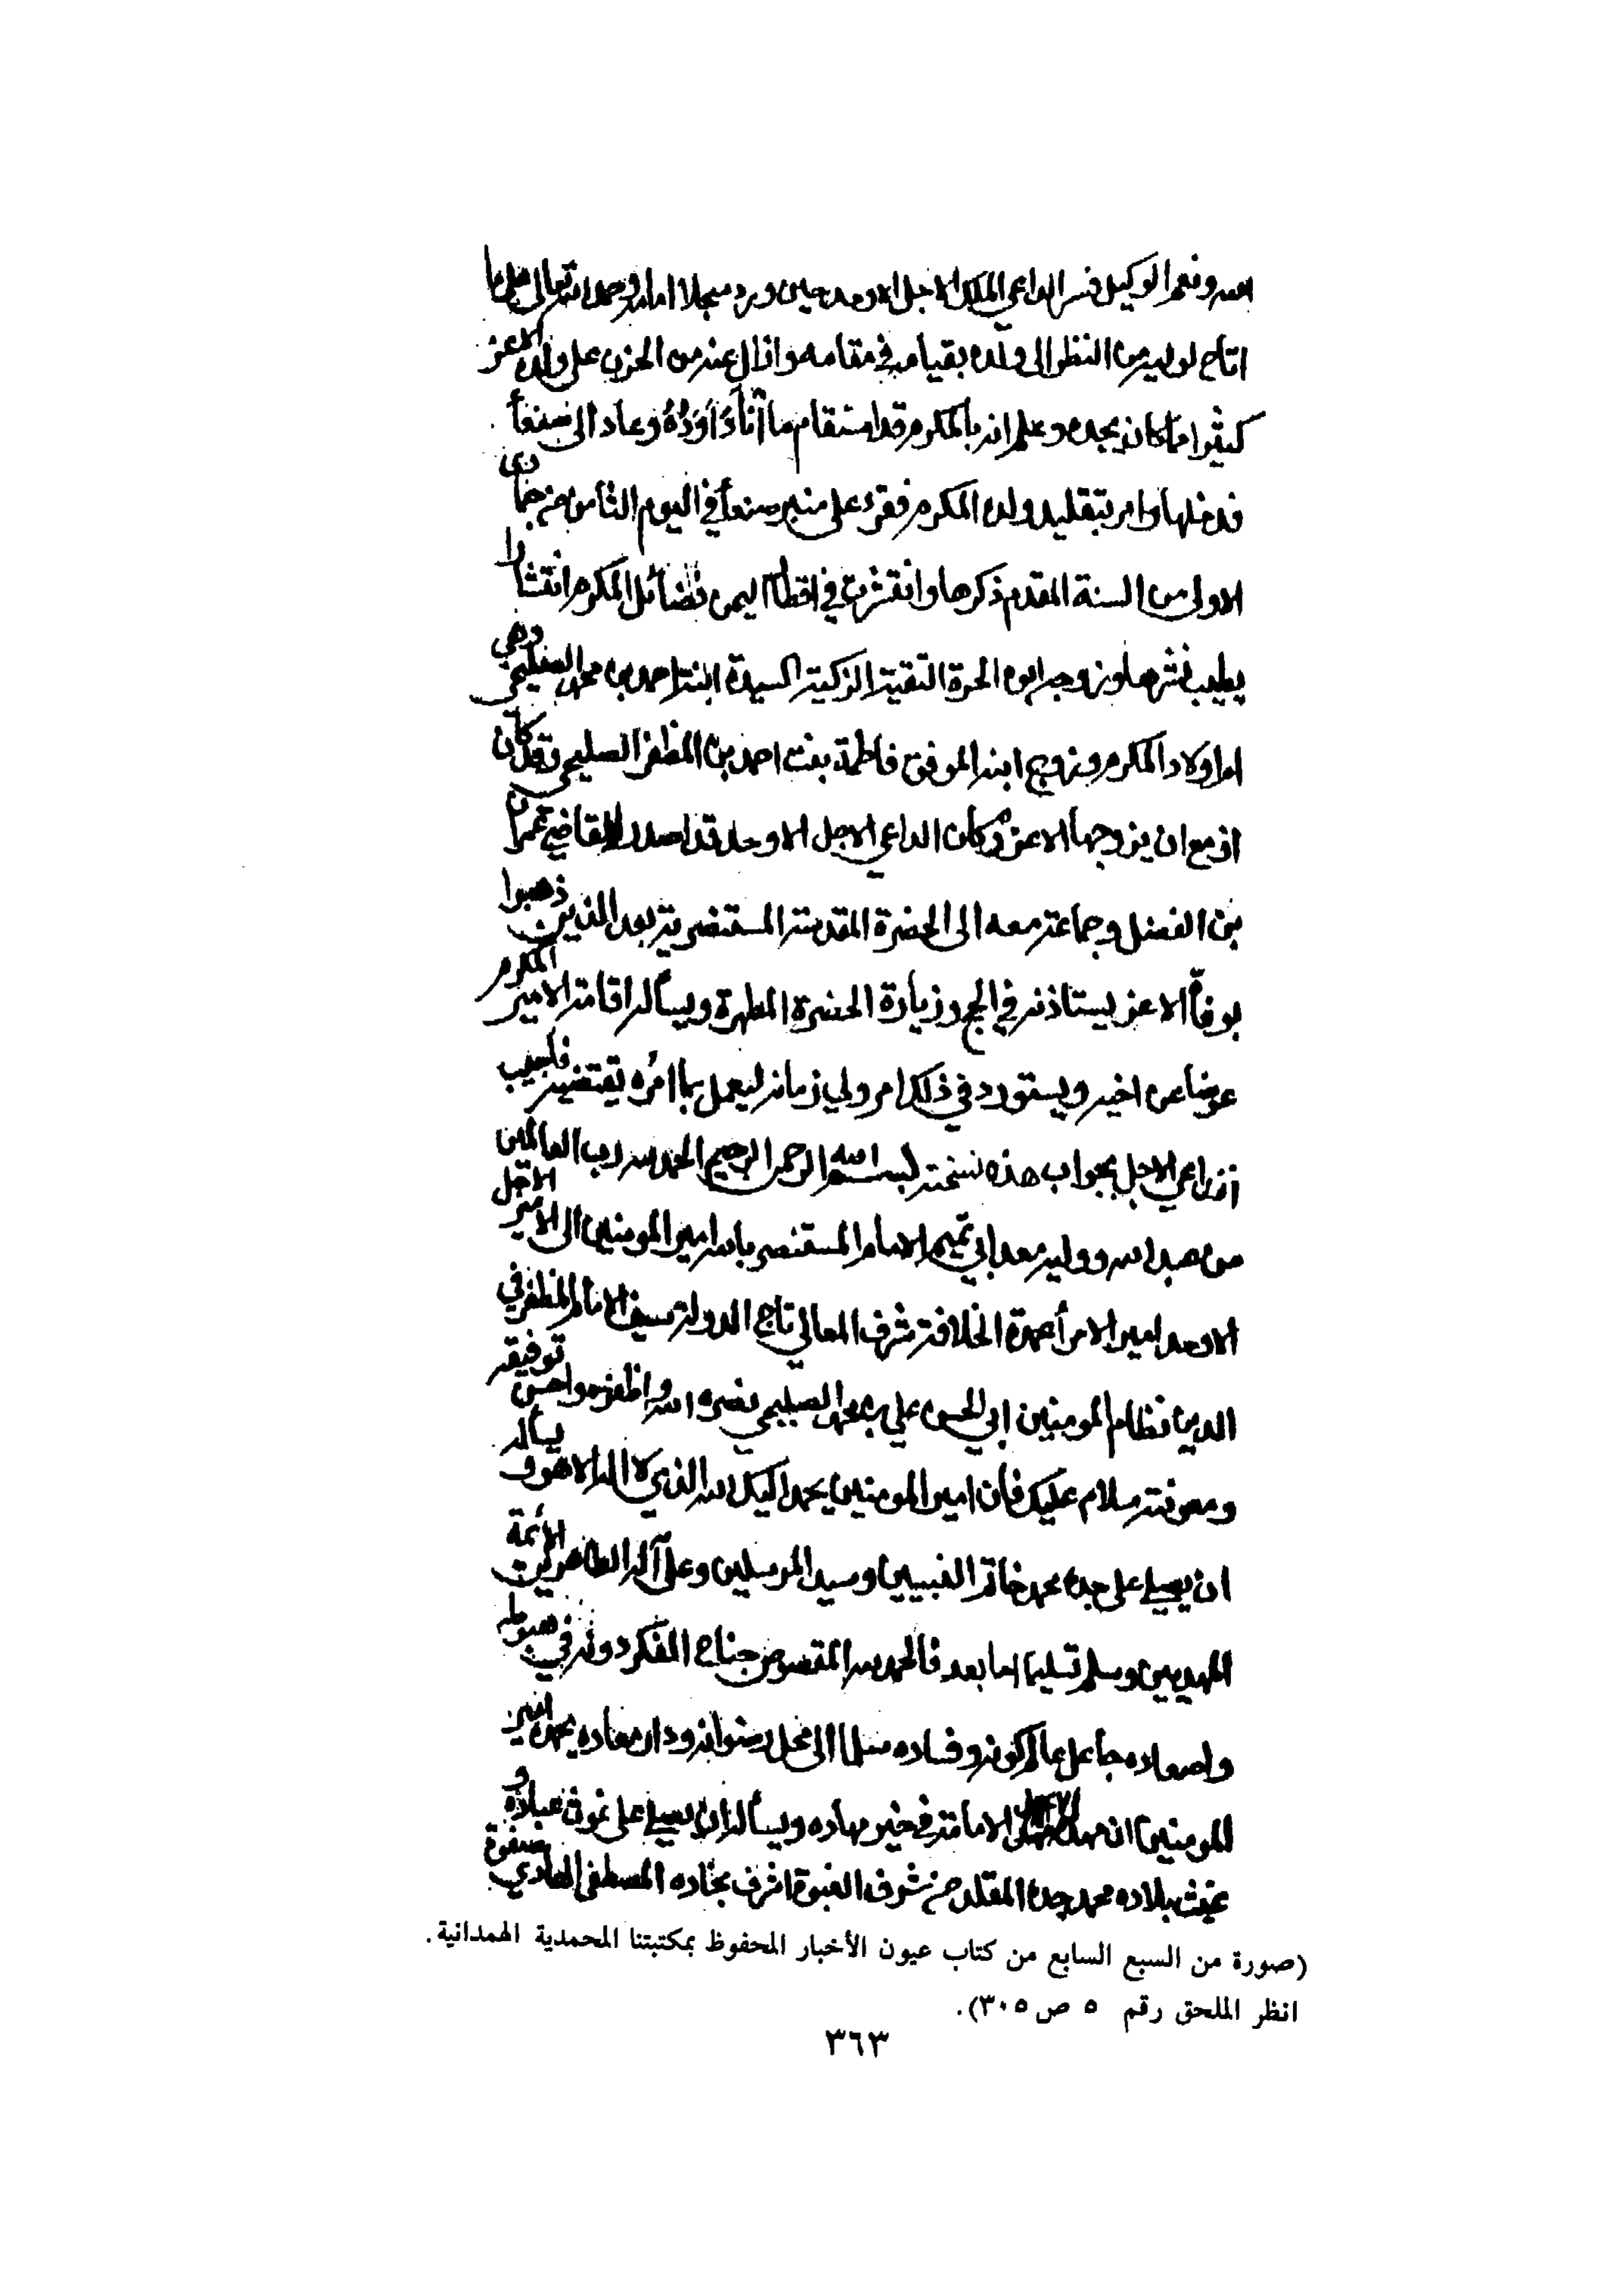 الله ونعم الوكيل فسر الداعي الملك الاجل الاوحد حين ورد سجلا امامه وحمد الله تعالى على ما
اتاح لوليه من النظر الى ولده بقيامه في مقامه وازال عنه من الحزن على ولده الاعز
كثيرا مما كان يجده وعلم انه بالمكرم قد استقام ما انآد اَوَدُهُ وعاد الى صنعأ
فدخلها وامر بتقليد ولده المكرم فقرء على منبر صنعأ في اليوم الثامن من جمادى
الاولى من السنة المقدم ذكرها وانتشرت في اقطار اليمن فضائل المكرم انتشارا
يطيب نشرها وزوجه ابوه الحرة التقية الزكية السيدة ابنة احمد بن محمد الصليحي وهي
ام اولاد المكرم وزوج ابنه الموفق فاطمة بنت احمد بن المظفر الصليحي وقد كان
ازمع ان يزوجها الاعز وكان الداعي الاجل الاوحد قد اصدر القاضي عمران
بن الفضل وجماعة معه الى الحضرة المقدسة المستنصرية بعد الذين ذهبوا
بوفأة الاعز يستاذنه في الحج وزيارة الحضرة المطهرة ويسأله اقامة الامير المكرم
عوضا عن اخيه ويستورد في ذلك امر ولي زمانه ليعمل بما امره يقتضيه فاجيب
الداعي الاجل بجواب هذه نسخته بسم الله الرحمن الرحيم الحمد لله رب العالمين
من عبد الله ووليه معد ابي تميم الامام المستنصر بالله امير المومنين الى الامير الاجل
الاوحد امير الامرأ عمدة الخلافة شرف المعالي تاج الدولة سيف الامام المظفر في
الدين نظام المومنين ابي الحسن علي بن محمد الصليحي نصره الله واظفره واحسن توفيقه
ومعونته سلام عليك فان امير المومنين يحمد اليك الله الذي لا اله الا هو ويسأله
ان يصلي على جده محمد خاتم النبيين وسيد المرسلين وعلى آله الطاهرين الأئمة
المهديين وسلم تسليما اما بعد فالحمد لله المقصوص جناح الفكر دونه في هبوطه
واصعاده جاعل عالم كونه وفساده سلما الى محل رضوانه ودار معاده يحمده امير
المومنين ان مهد الامامة في خير مهاده ويسأله ان يصلي على غوث عباده و
غيث بلاده محمد جده المقلد من شرف النبوة اشرف نجاده المصطفى الهادي صفوة
(صورة من السبع السابع من كتاب عيون الأخبار المحفوظ بمكتبتنا المحمدية الهمدانية.
انظر الملحق رقم ٥ ص ٣٠٥).
٣٦٣